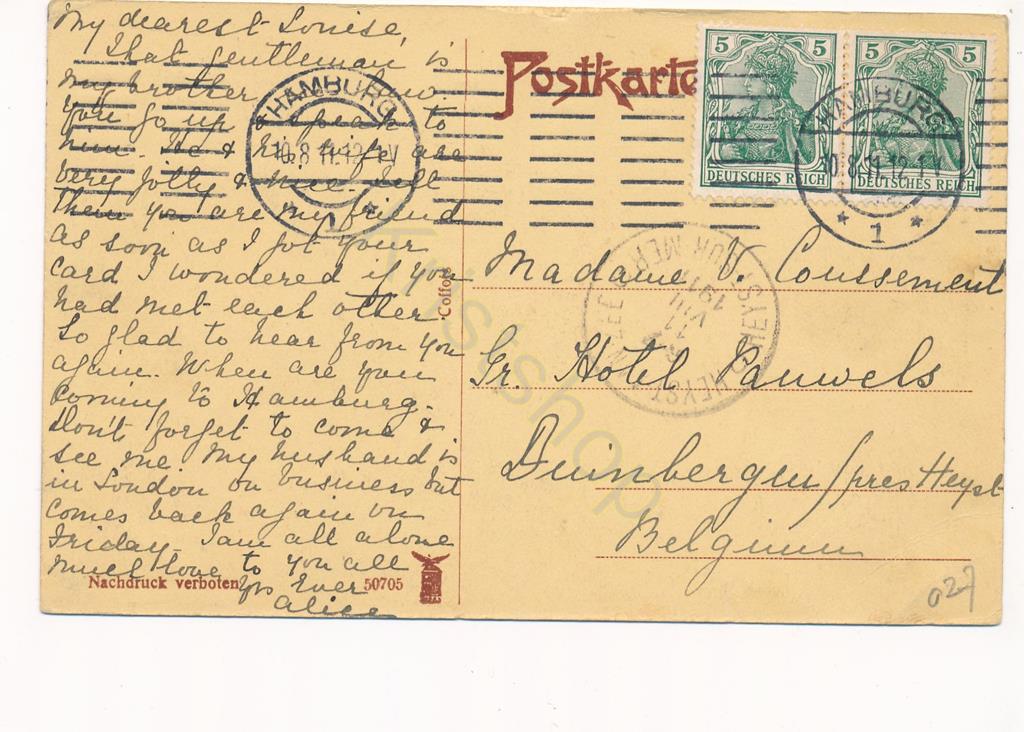 My dearest Louise,
That gentleman is
my brother
you go up & speak to
him. He & his wife are
very jolly & nice. Tell
them you are my friend
as soon as I got your
card I wondered if you
had met each other.
So glad to hear from you
again. When are you
coming to Hamburg.
Don't forget to come &
see me. My husband is
in London on business but
comes back again on
Friday. I am all alone
much love to you all
Yrs Ever
Alice
Nachdruck verboten
50705
Postkarte
5 5
DEUTSCHES REICH
5 5
DEUTSCHES REICH
HAMBURG
10.8.11.12-1V
* 1 *
HAMBURG
10.8.11.12-1V
* 1 *
HEYST
1911
Madame V. Coussement
Gr. Hotel Pauwels
Duinbergen / pres Heyst
Belgium
027